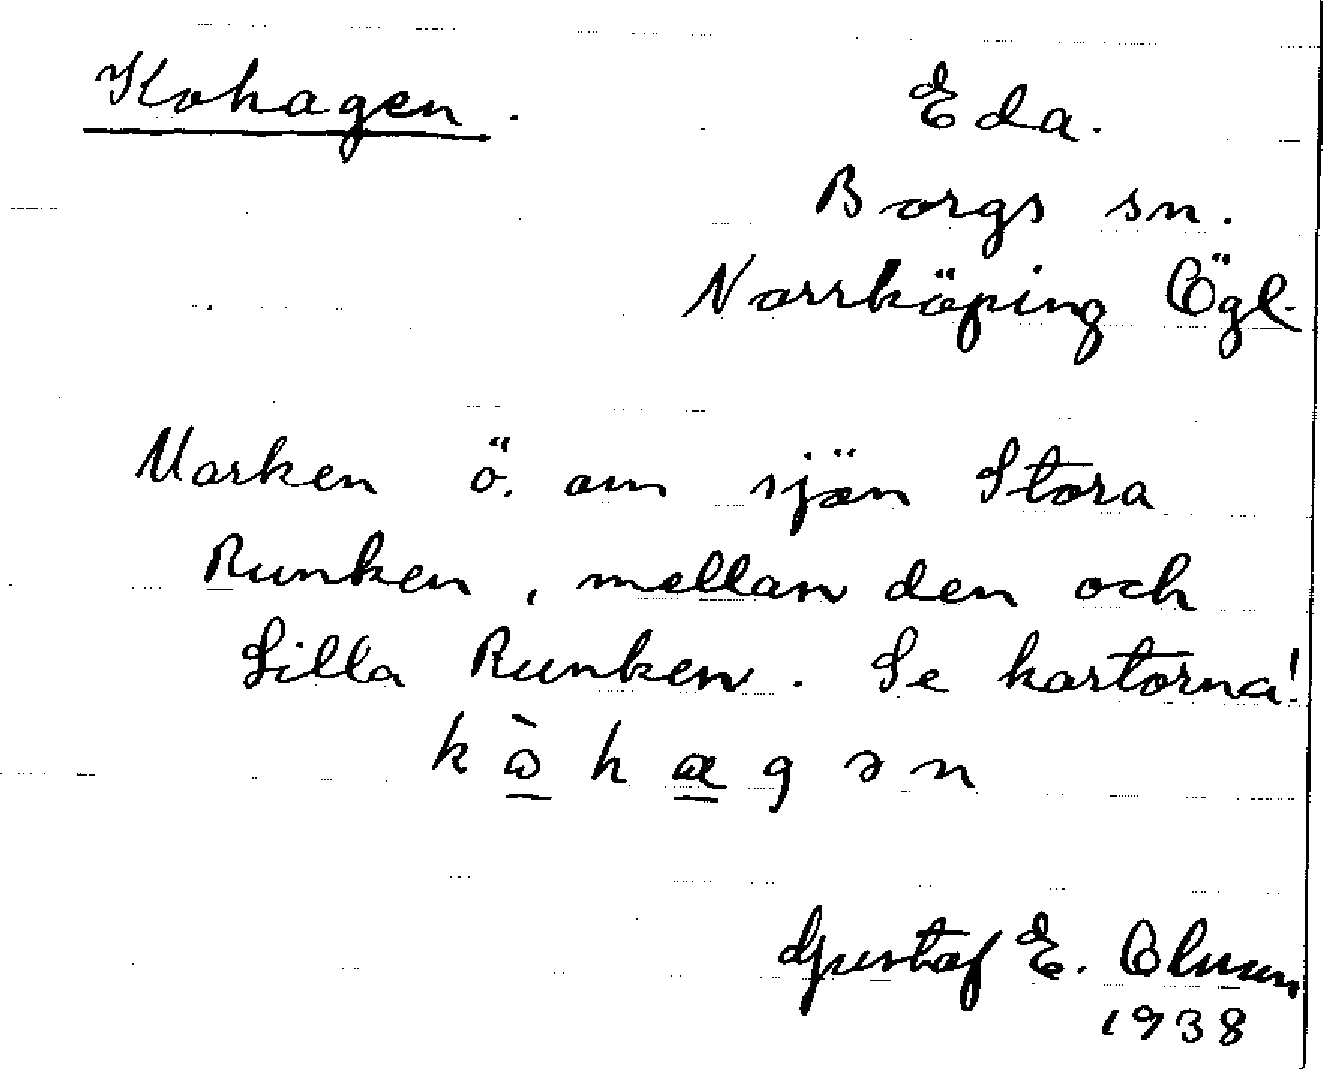 Kohagen.
Eda.
Borgs sn.
Norrköping Ögl.
Marken ö. om sjön Stora
Runken, mellan den och
Lilla Runken. Se kartorna!
kὼhαgən
Gustaf E. Olsson
1938